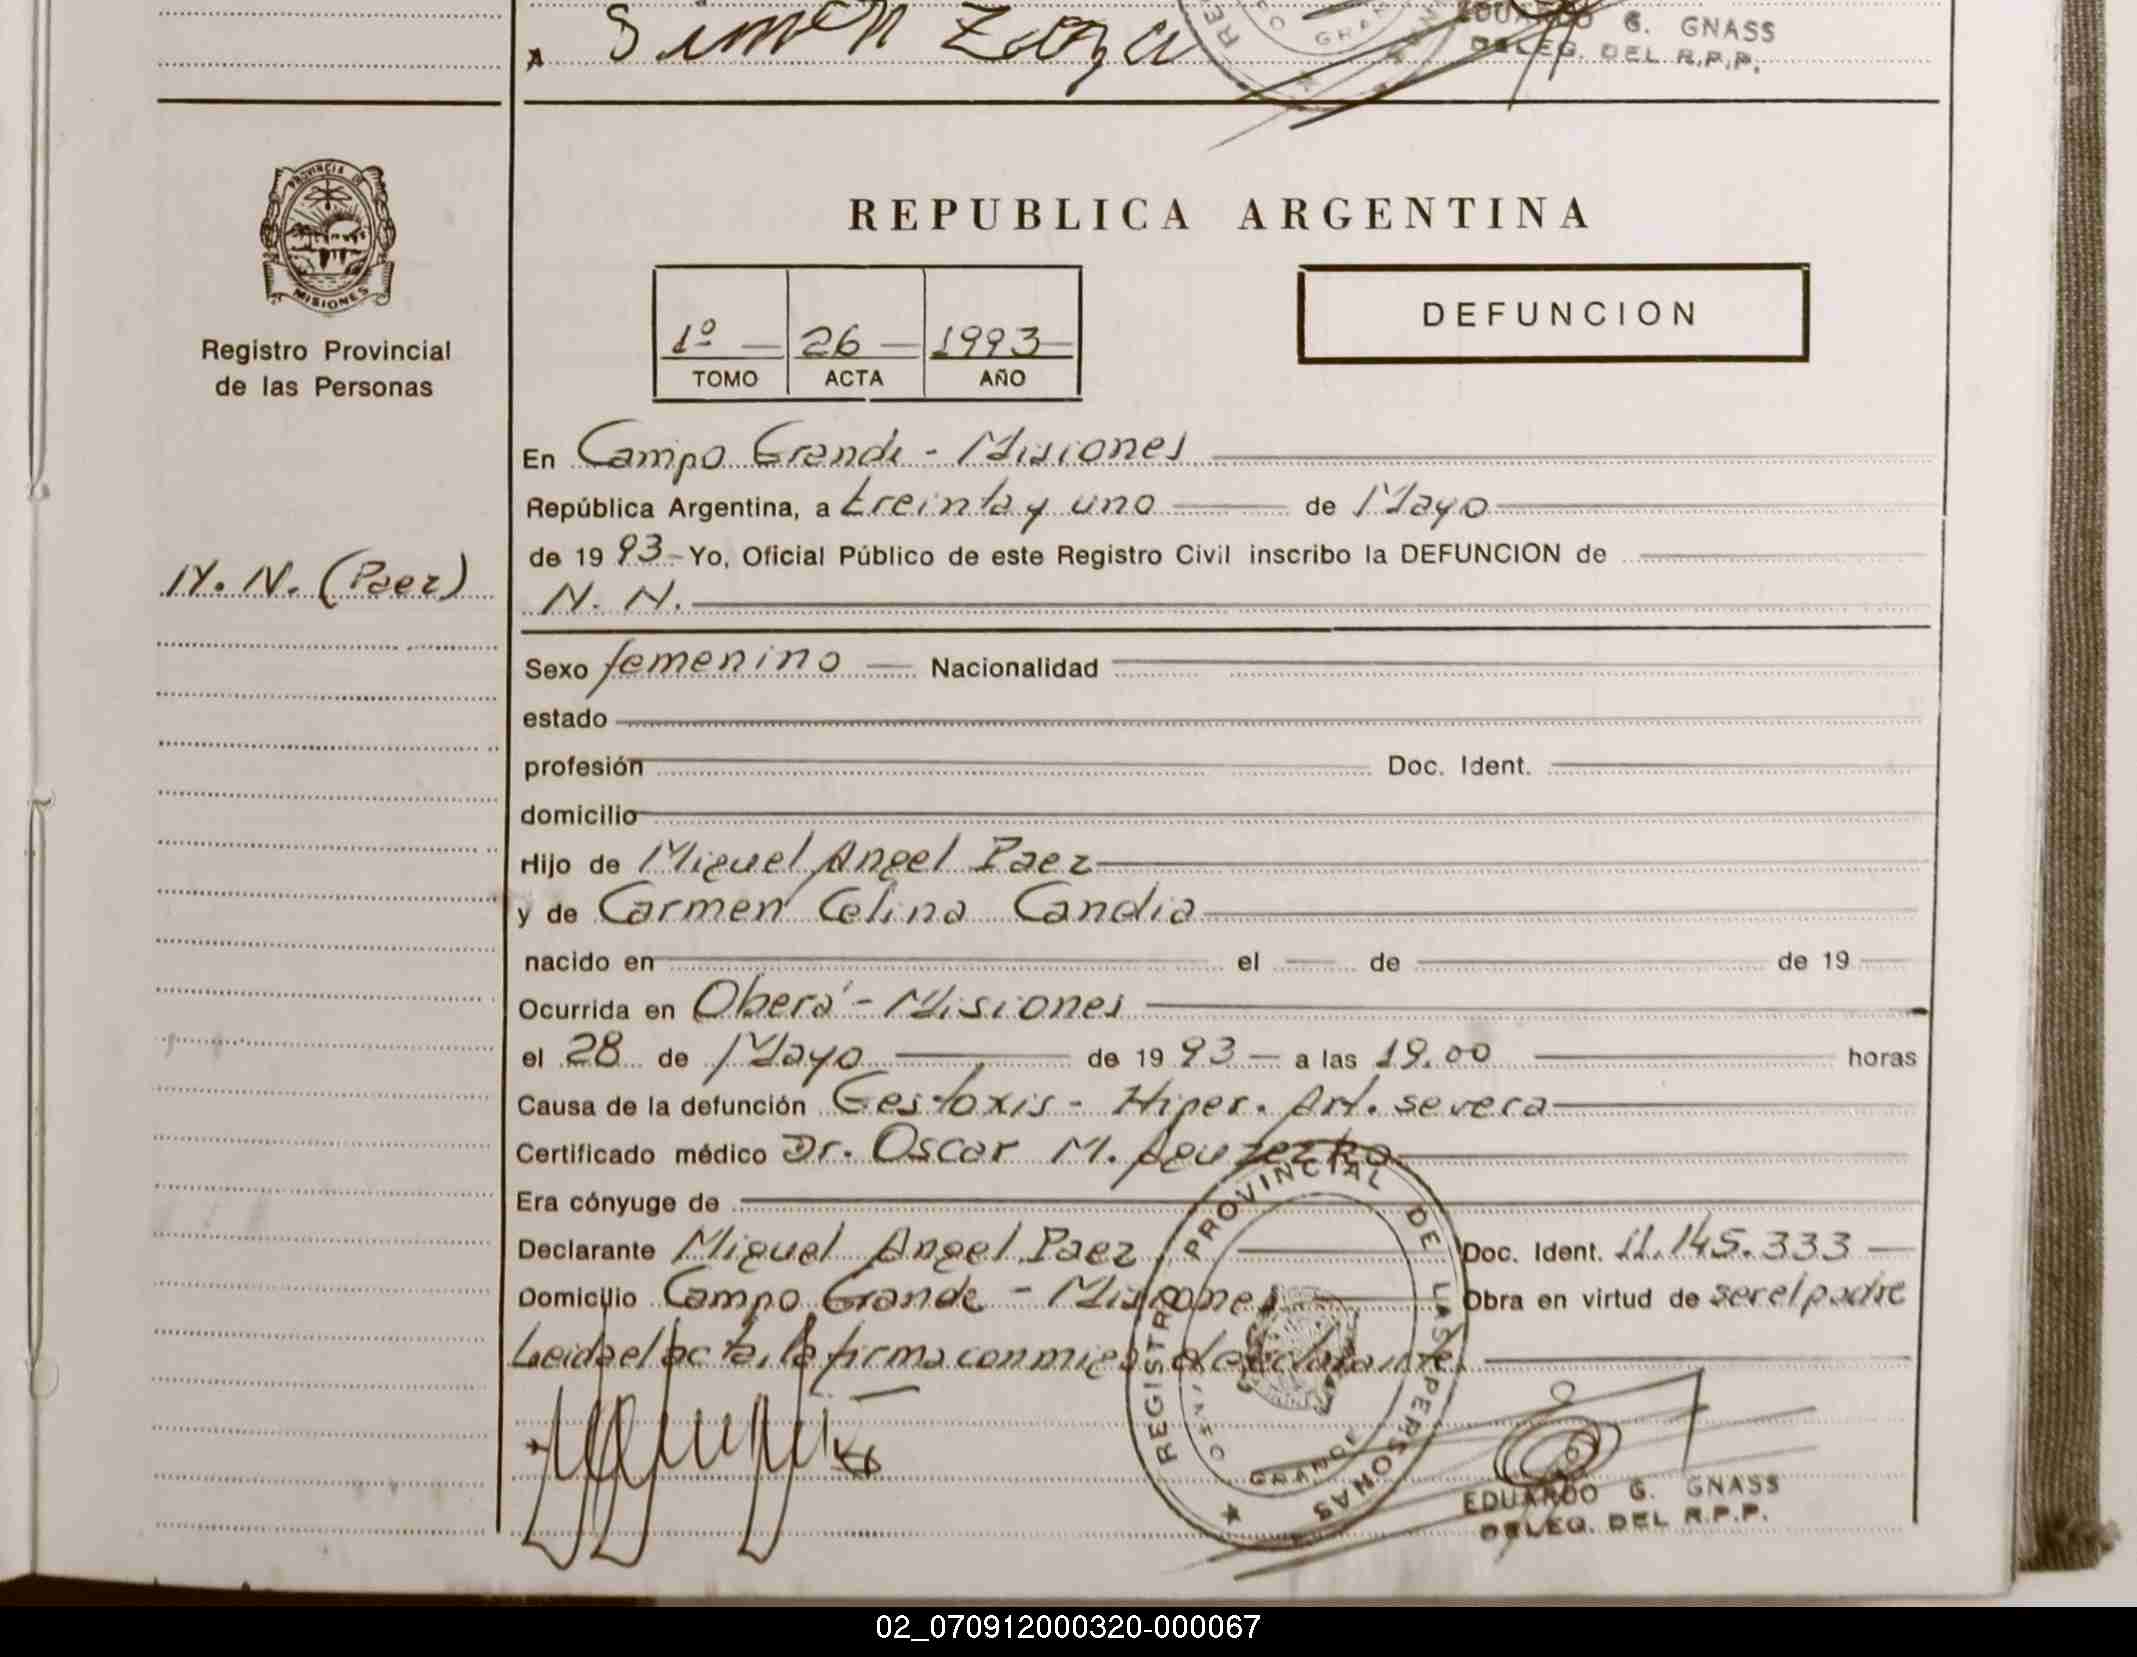 Simón Zarza
EDUARDO G. GNASS
DELEG. DEL R.P.P.
PROVINCIA DE
MISIONES
Registro Provincial
de las Personas
REPUBLICA ARGENTINA
DEFUNCION
1º 26 1993
TOMO ACTA AÑO
En Campo Grande - Misiones
República Argentina, a treinta y uno de Mayo
de 19 93 Yo, Oficial Público de este Registro Civil inscribo la DEFUNCION de
N. N. (Paez)
N. N.
Sexo femenino Nacionalidad
estado
profesión Doc. Ident.
domicilio
Hijo de Miguel Angel Paez
y de Carmen Celina Candia
nacido en el de de 19
Ocurrida en Oberá - Misiones
el 28 de Mayo de 19 93 a las 19.00 horas
Causa de la defunción Gestoxis - Hiper. Art. severa
Certificado médico Dr. Oscar M.
Era cónyuge de
Declarante Miguel Angel Paez Doc. Ident. 11.145.333
Domicilio Campo Grande - Misiones Obra en virtud de ser el padre
Leida el acta, la firma conmigo el declarante.
REGISTRO PROVINCIAL DE LAS PERSONAS
GRANDE
EDUARDO G. GNASS
DELEG. DEL R.P.P.
02_070912000320-000067